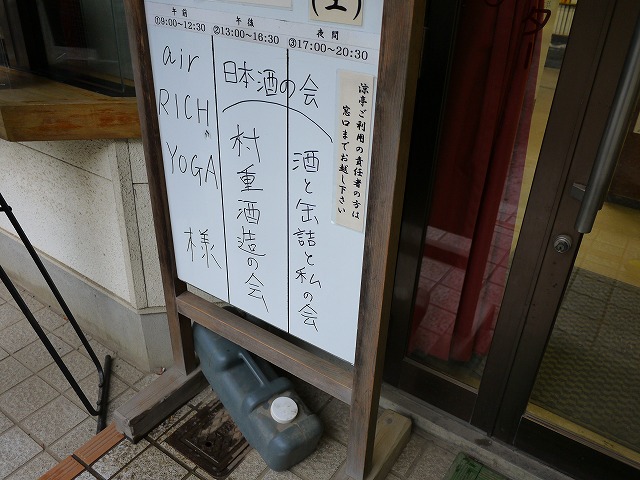 (土)
午前
①9:00~12:30
午後
②13:00~16:30
夜間
③17:00~20:30
air
RICH
YOGA
様
日本酒の会
村重酒造の会
酒と缶詰と私の会
涼亭ご利用の責任者の方は
窓口までお越し下さい
ター